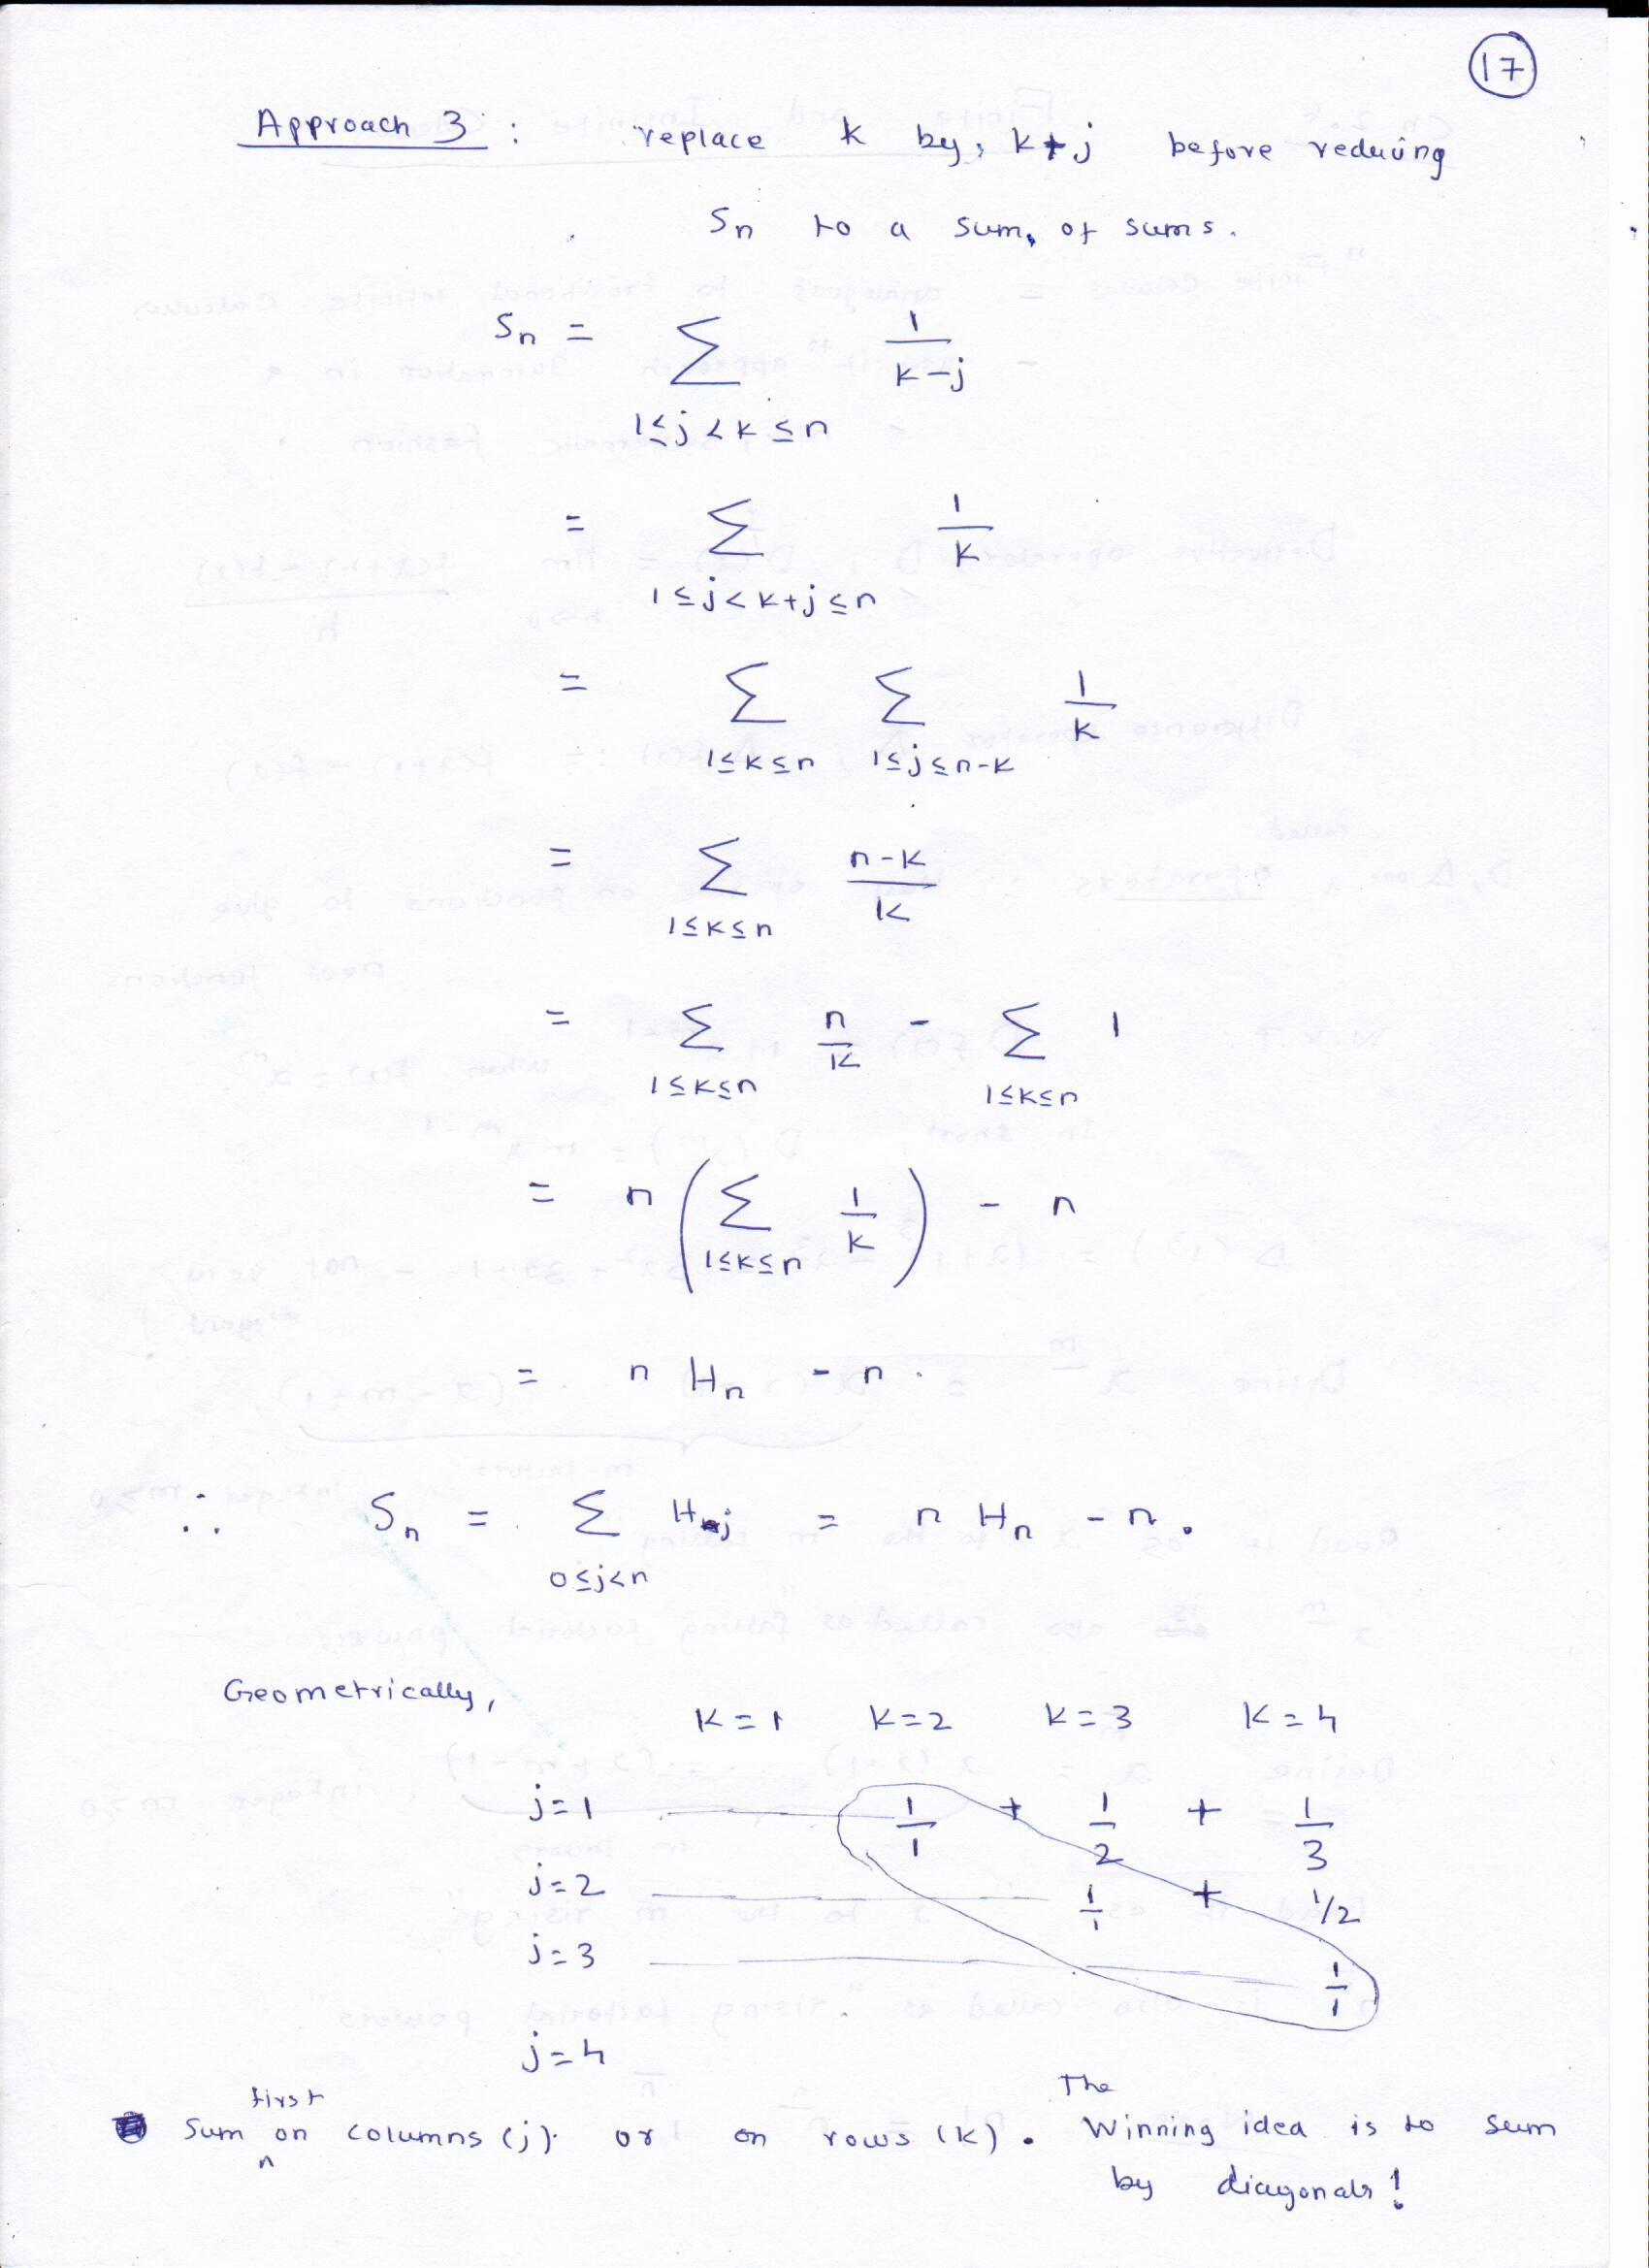 17
Approach 3 : replace k by, k+j before reducing
Sn to a sum, of sums.
Sn = Σ 1/(k-j)
1≤j<k≤n
= Σ 1/k
1≤j<k+j≤n
= Σ Σ 1/k
1≤k≤n 1≤j≤n-k
= Σ (n-k)/k
1≤k≤n
= Σ n/k - Σ 1
1≤k≤n 1≤k≤n
= n ( Σ 1/k ) - n
1≤k≤n
= n Hn - n .
∴ Sn = Σ Hj = n Hn - n .
0≤j<n
Geometrically,
k=1 k=2 k=3 k=4
j=1 1/1 + 1/2 + 1/3
j=2 1/1 + 1/2
j=3 1/1
j=4
Sum first on columns (j) or on rows (k) . The Winning idea is to sum
by diagonals !